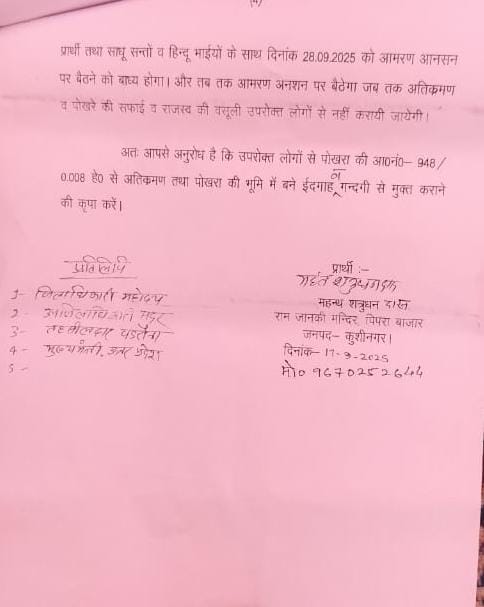 (4)
प्रार्थी तथा साधू सन्तों व हिन्दू भाईयों के साथ दिनांक 28.09.2025 को आमरण आनसन
पर बैठने को बाध्य होगा। और तब तक आमरण अनशन पर बैठेगा जब तक अतिक्रमण
व पोखरे की सफाई व राजस्व की वसूली उपरोक्त लोगों से नहीं करायी जायेगी।
अतः आपसे अनुरोध है कि उपरोक्त लोगों से पोखरा की आ0नं0– 948/
0.008 हे0 से अतिक्रमण तथा पोखरा की भूमि में बने ईदगाह व गन्दगी से मुक्त कराने
की कृपा करें।
प्रतिलिपि
1- जिलाधिकारी महोदय
2-
3- तहसीलदार पडरौना
4- मुख्यमंत्री, उत्तर प्रदेश
5-
प्रार्थी :–
महंत शत्रुधन दास
महन्थ शत्रुधन दास
राम जानकी मन्दिर, पिपरा बाजार
जनपद– कुशीनगर।
दिनांक– 17-9-2025
मो0 9670252644